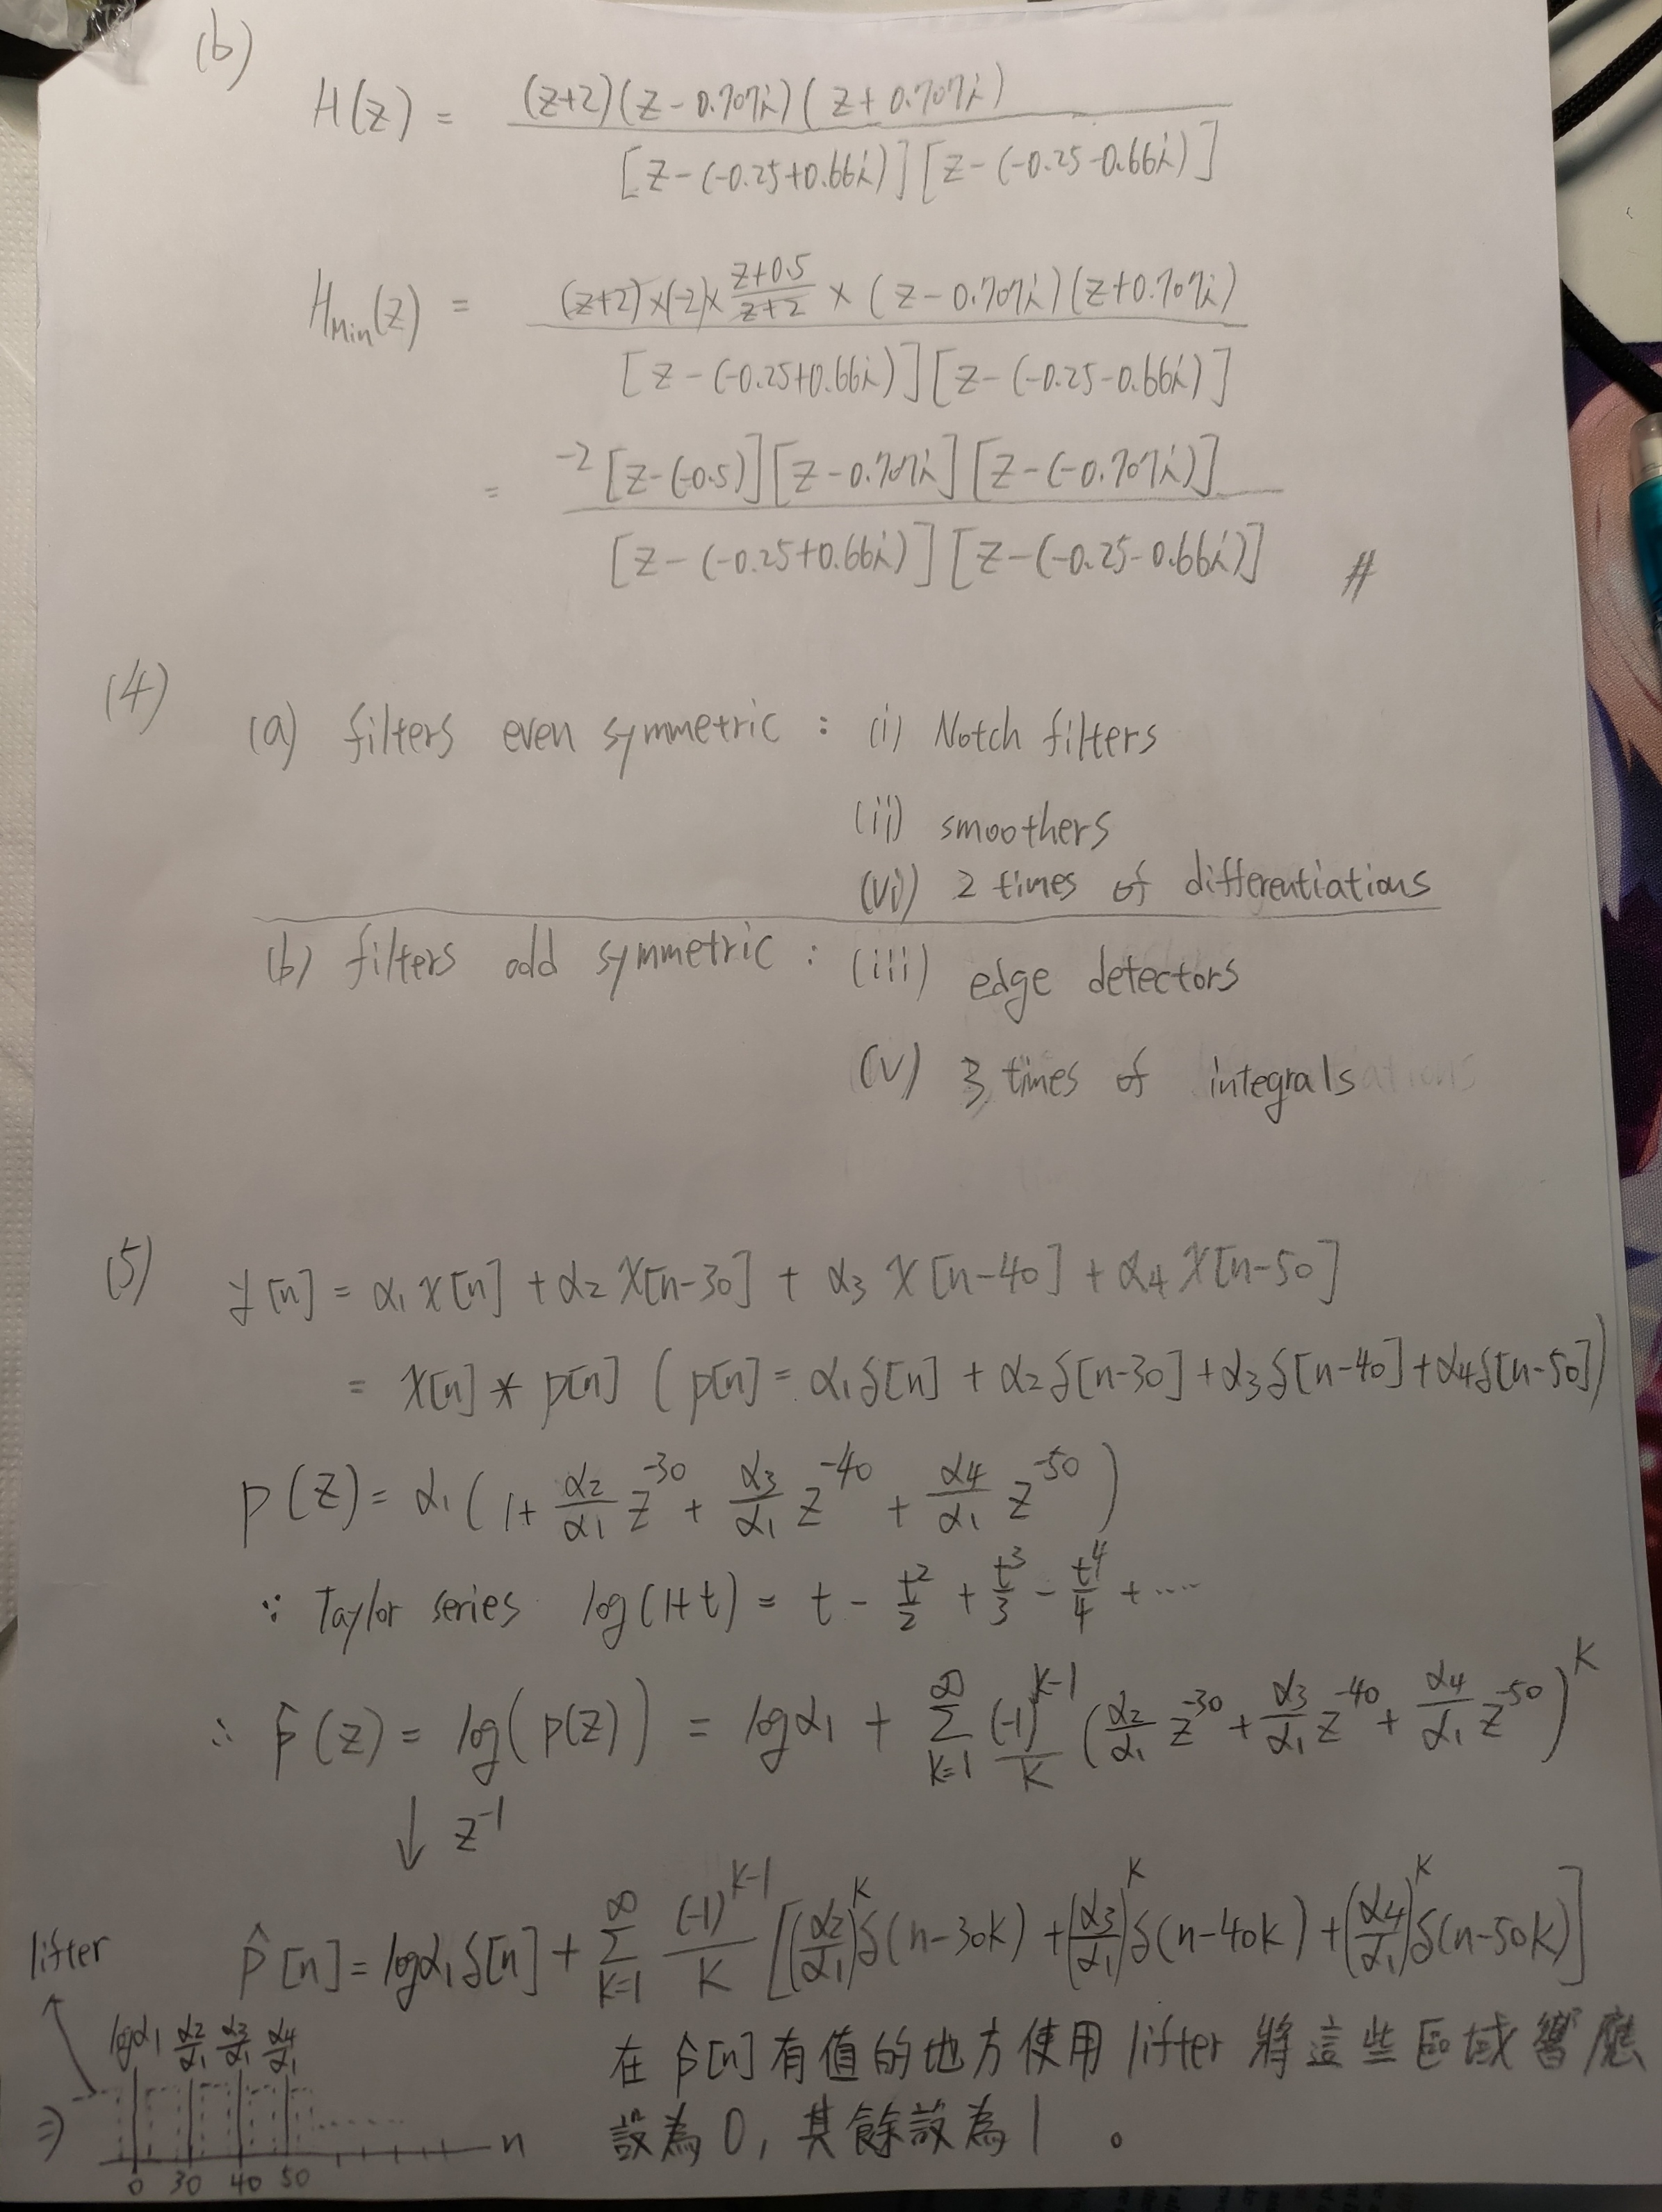 (b)
H(z) = (z+2)(z-0.707i)(z+0.707i) / [z-(-0.25+0.66i)][z-(-0.25-0.66i)]
H_Min(z) = (z+2)×(-2)× (z+0.5)/(z+2) × (z-0.707i)(z+0.707i) / [z-(-0.25+0.66i)][z-(-0.25-0.66i)]
= -2[z-(-0.5)][z-0.707i][z-(-0.707i)] / [z-(-0.25+0.66i)][z-(-0.25-0.66i)] #
(4)
(a) filters even symmetric : (i) Notch filters
(ii) smoothers
(vi) 2 times of differentiations
(b) filters odd symmetric : (iii) edge detectors
(v) 3 times of integrals
(5)
y[n] = α1 x[n] + α2 x[n-30] + α3 x[n-40] + α4 x[n-50]
= x[n] * p[n] ( p[n] = α1 δ[n] + α2 δ[n-30] + α3 δ[n-40] + α4 δ[n-50])
P(z) = α1 (1 + α2/α1 z^-30 + α3/α1 z^-40 + α4/α1 z^-50)
∵ Taylor series log(1+t) = t - t^2/2 + t^3/3 - t^4/4 + ....
∴ P̂(z) = log(p(z)) = logα1 + ∑_{k=1}^{∞} (-1)^{k-1}/k (α2/α1 z^-30 + α3/α1 z^-40 + α4/α1 z^-50)^k
↓ z^-1
P̂[n] = logα1 δ[n] + ∑_{k=1}^{∞} (-1)^{k-1}/k [(α2/α1)^k δ(n-30k) + (α3/α1)^k δ(n-40k) + (α4/α1)^k δ(n-50k)]
lifter
logα1 α2/α1 α3/α1 α4/α1
⇒ n
0 30 40 50
在 p̂[n] 有值的地方使用 lifter 將這些區域響應
設為 0, 其餘設為 1 。